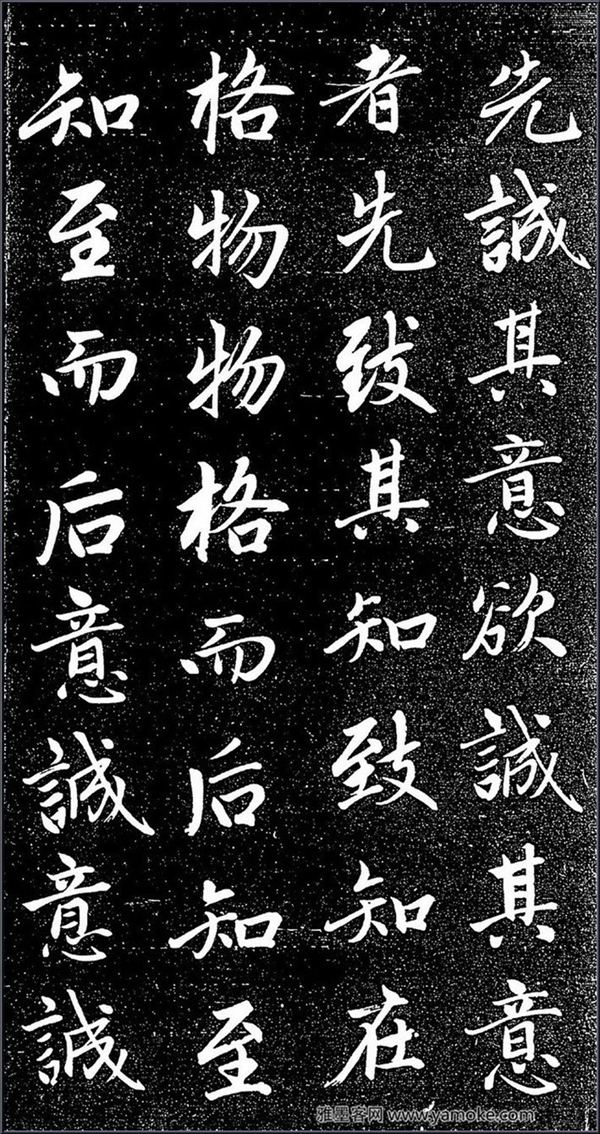 先誠其意欲誠其意
者先致其知致知在
格物物格而后知至
知至而后意誠意誠
雅墨客网 www.yamoke.com